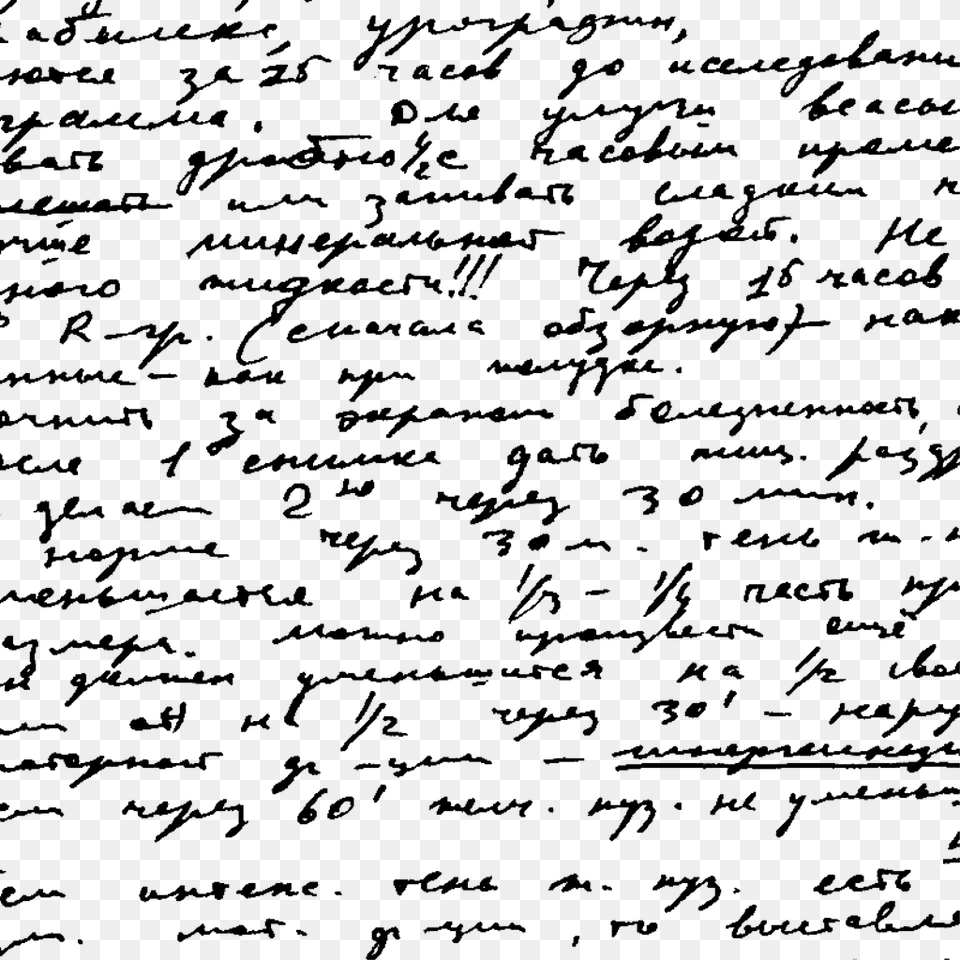 урографин,
ются за 15 часов до исследовани
грамма. Для улучш всасы
вать дробно ½ с часовым проме
или запивать сладким ч
минеральной водой. Не
ного жидкости!!! Через 15 часов
R-гр. (сначала обзорную) – нак
нные – как при желудке.
очнить за экраном болезненность,
осле 1 снимка дать пищ. раздр
делаем 2ю через 30 мин.
норме через 30 м. тень ж.п
меньшается на 1/3 – 1/4 часть пр
азмера. Можно произвести ещё
должен уменьшится на 1/2 свое
на 1/2 через 30' – нару
моторной ф-ции –
ем через 60' желч. пуз. не уменьш
интенс. тень ж. пуз. есть
мот. ф-ции, то выставля